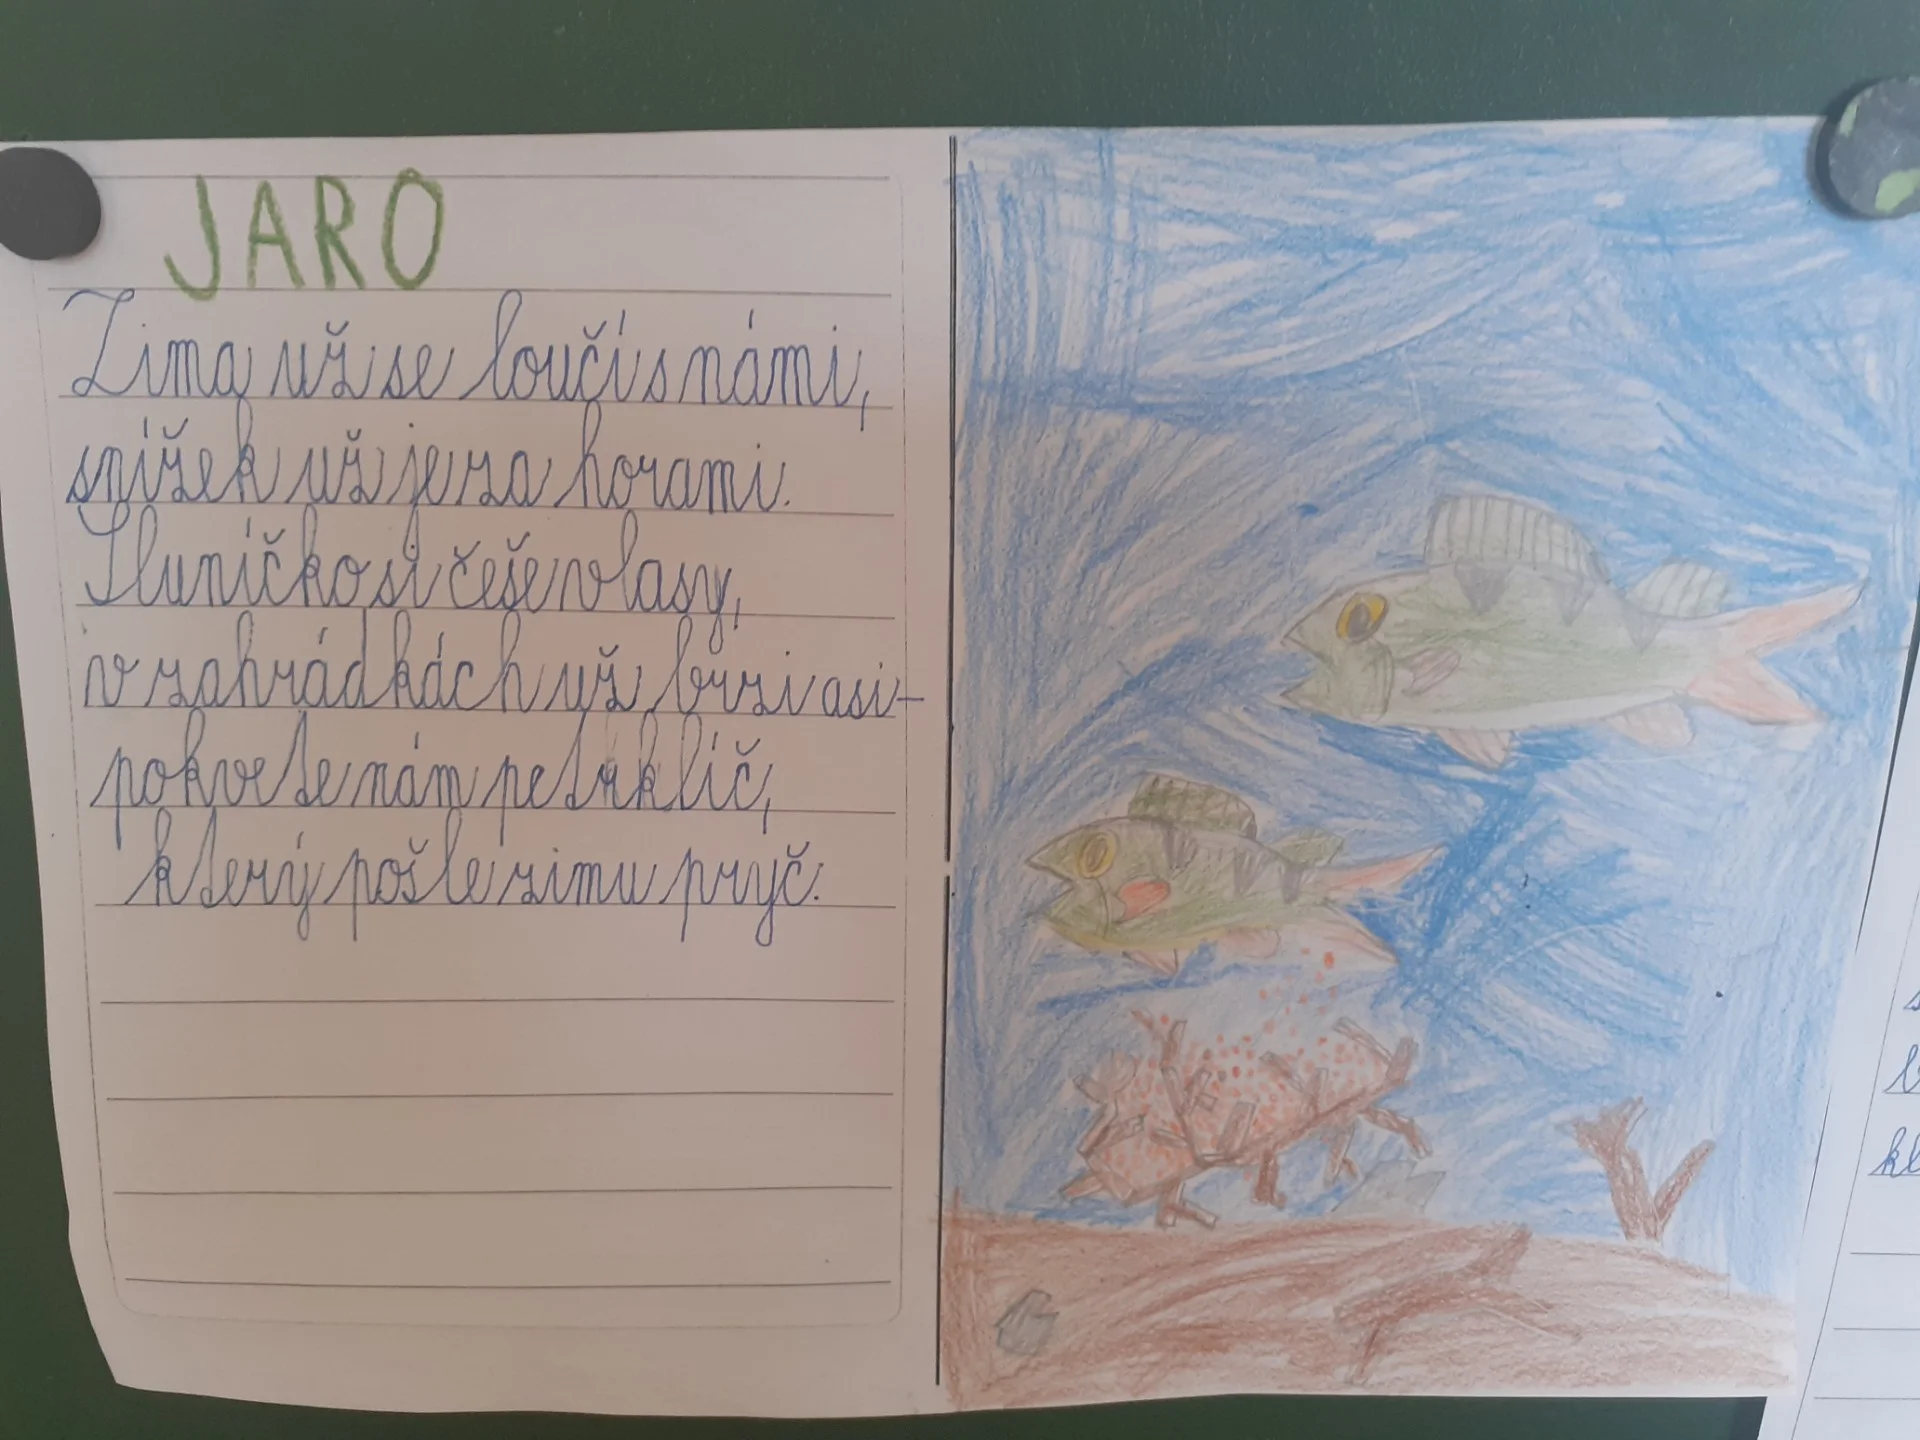 JARO
Zima už se loučí s námi,
snížek už je za horami.
Sluníčko si češe vlasy,
v zahrádkách už brzi asi-
pokvete nám petrklíč,
který pošle zimu pryč.
kl